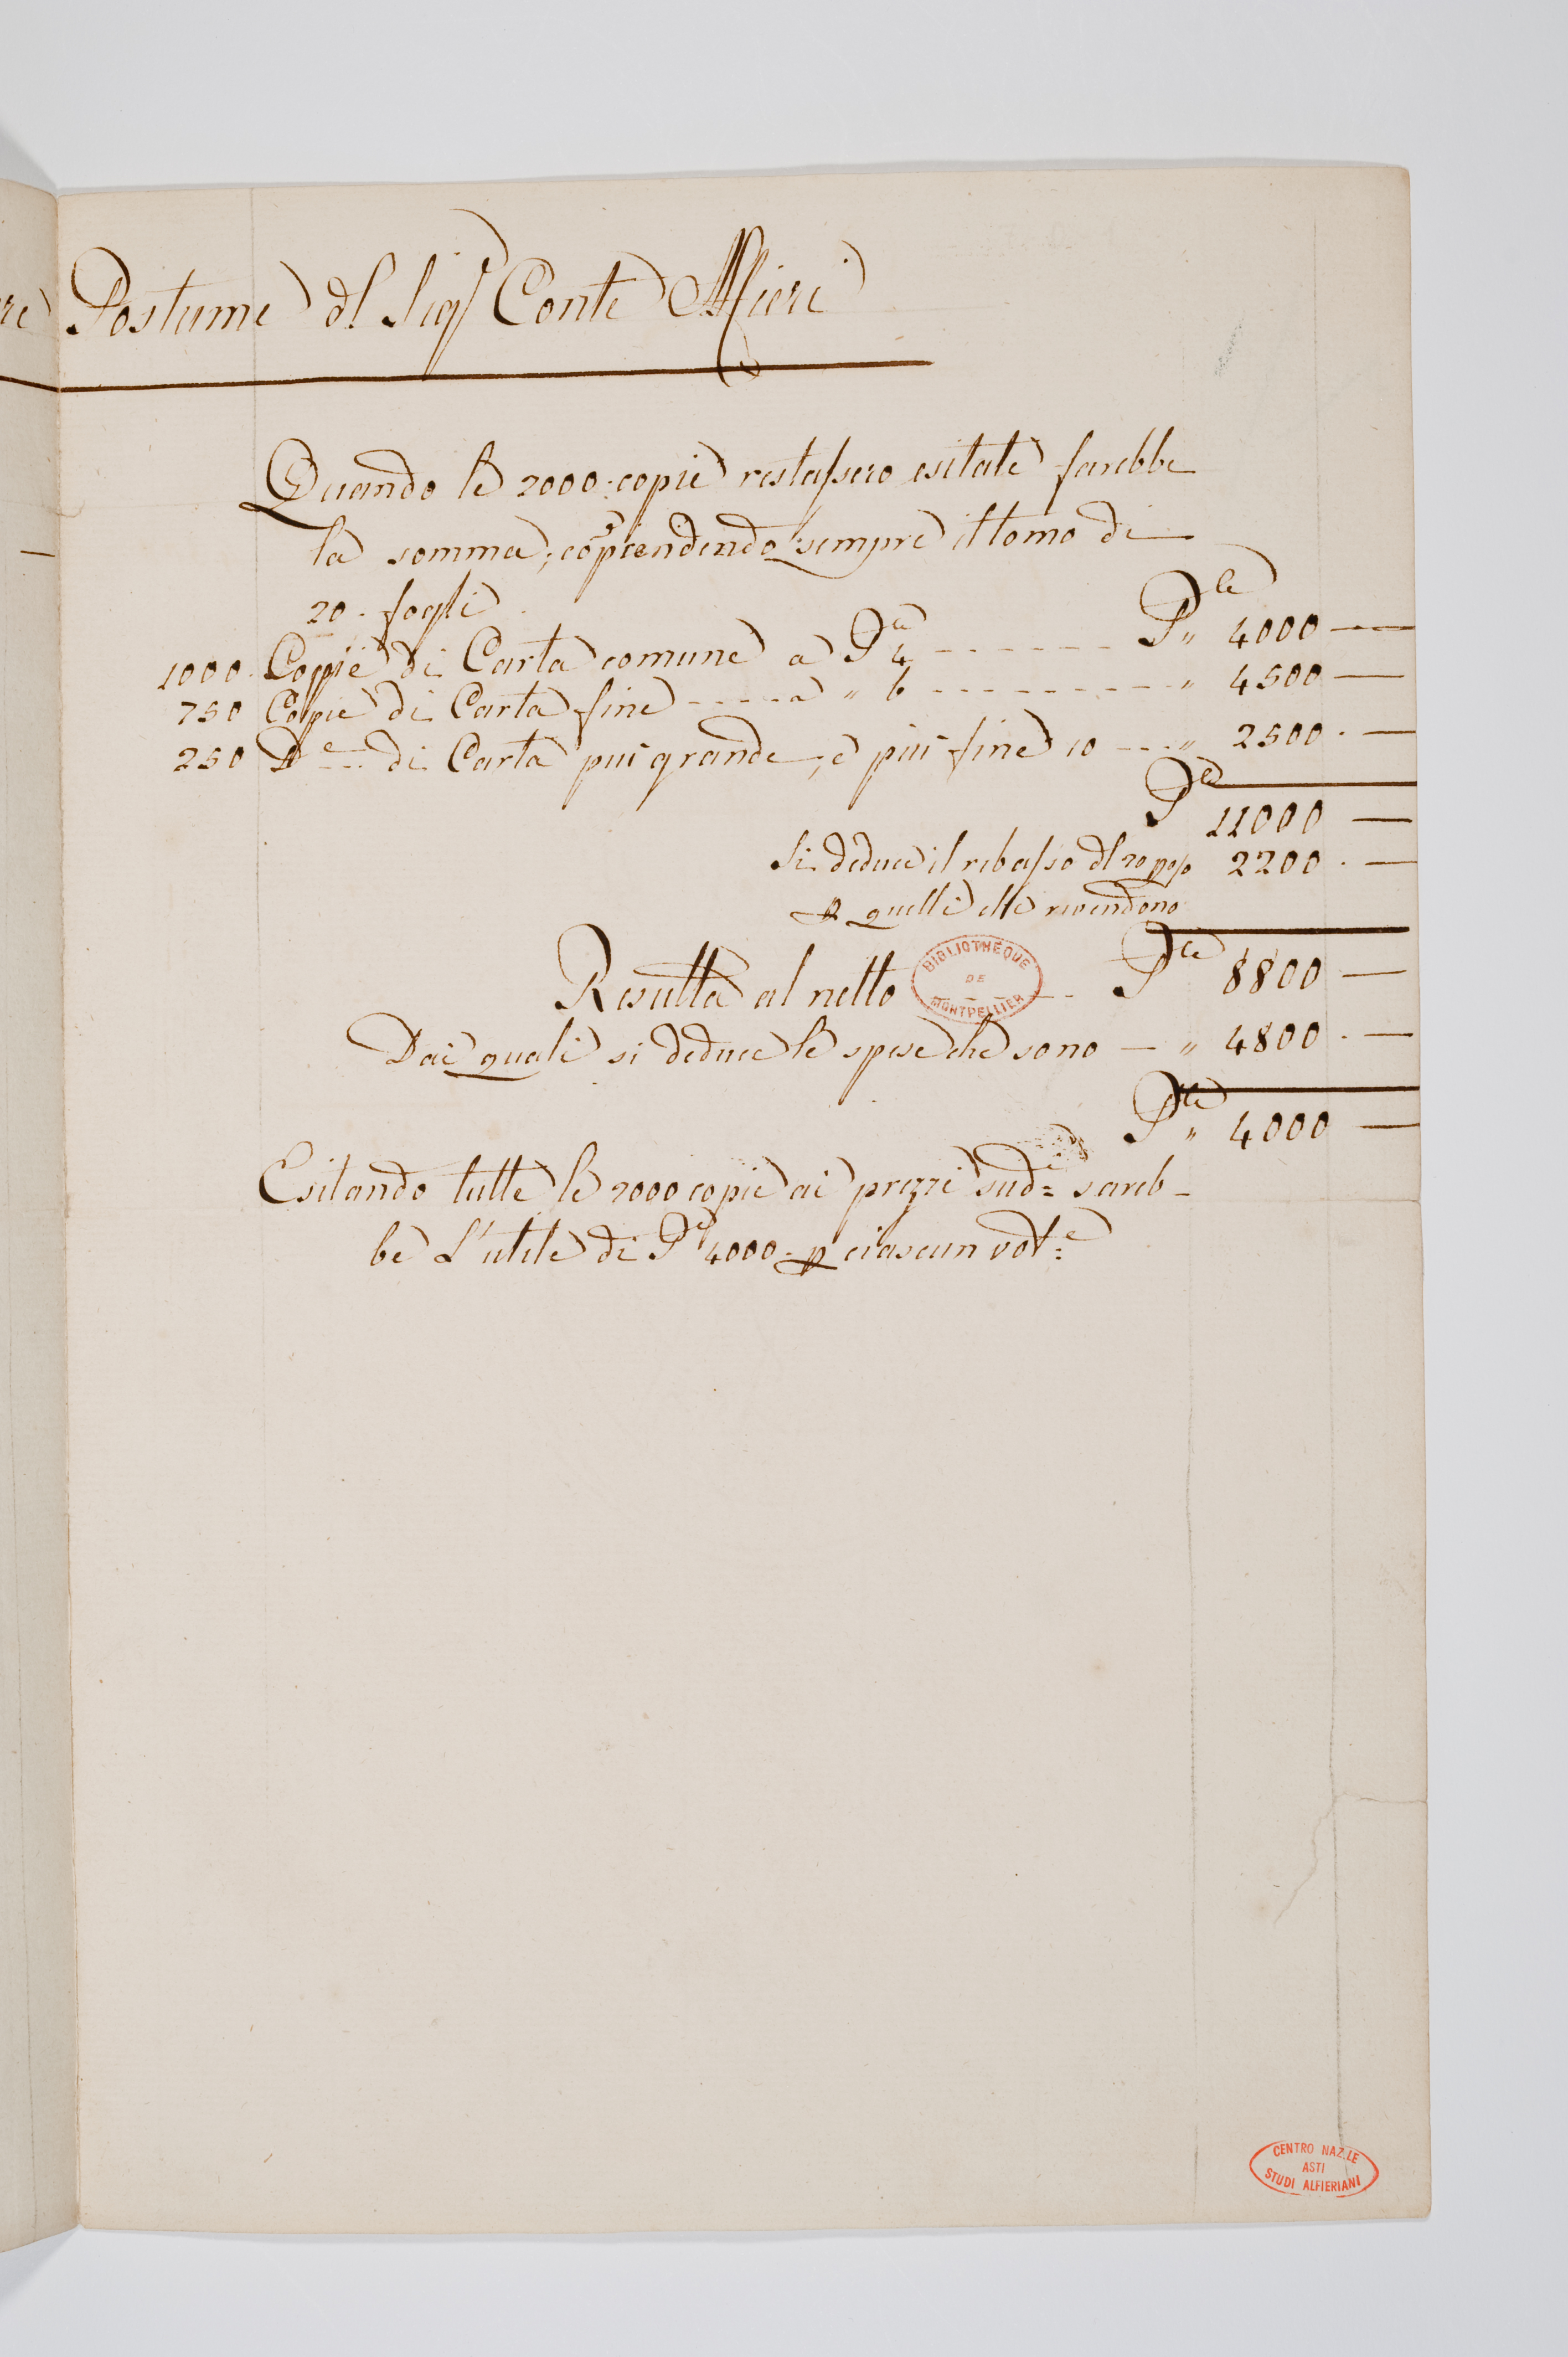 re Postume dl Sigr Conte Alfieri
Quando le 2000. copie restassero esitate sarebbe
la somma, coprendendo sempre il tomo di
20. fogli
1000. Coppie di Carta comune a Ple 4 ------ Ple „ 4000 —
750 Copie di Carta fine ----- a „ 6 --------- „ 4500 —
250 De --- di Carta più grande, e più fine 10 --- „ 2500. —
Ple 11000 —
Si deduce il rebasso dl 20 p% 2200. —
p quelli che rivendono
Resulta al netto --- Ple 8800 —
BIBLIOTHÈQUE DE MONTPELLIER
Dai quali si deduce le spese che sono — „ 4800. —
Ple „ 4000 —
Esitando tutte le 2000 copie ai prezzi sudi = sareb-
be L'utile di Ple 4000. p ciascun vole =
CENTRO NAZ.LE
ASTI
STUDI ALFIERIANI